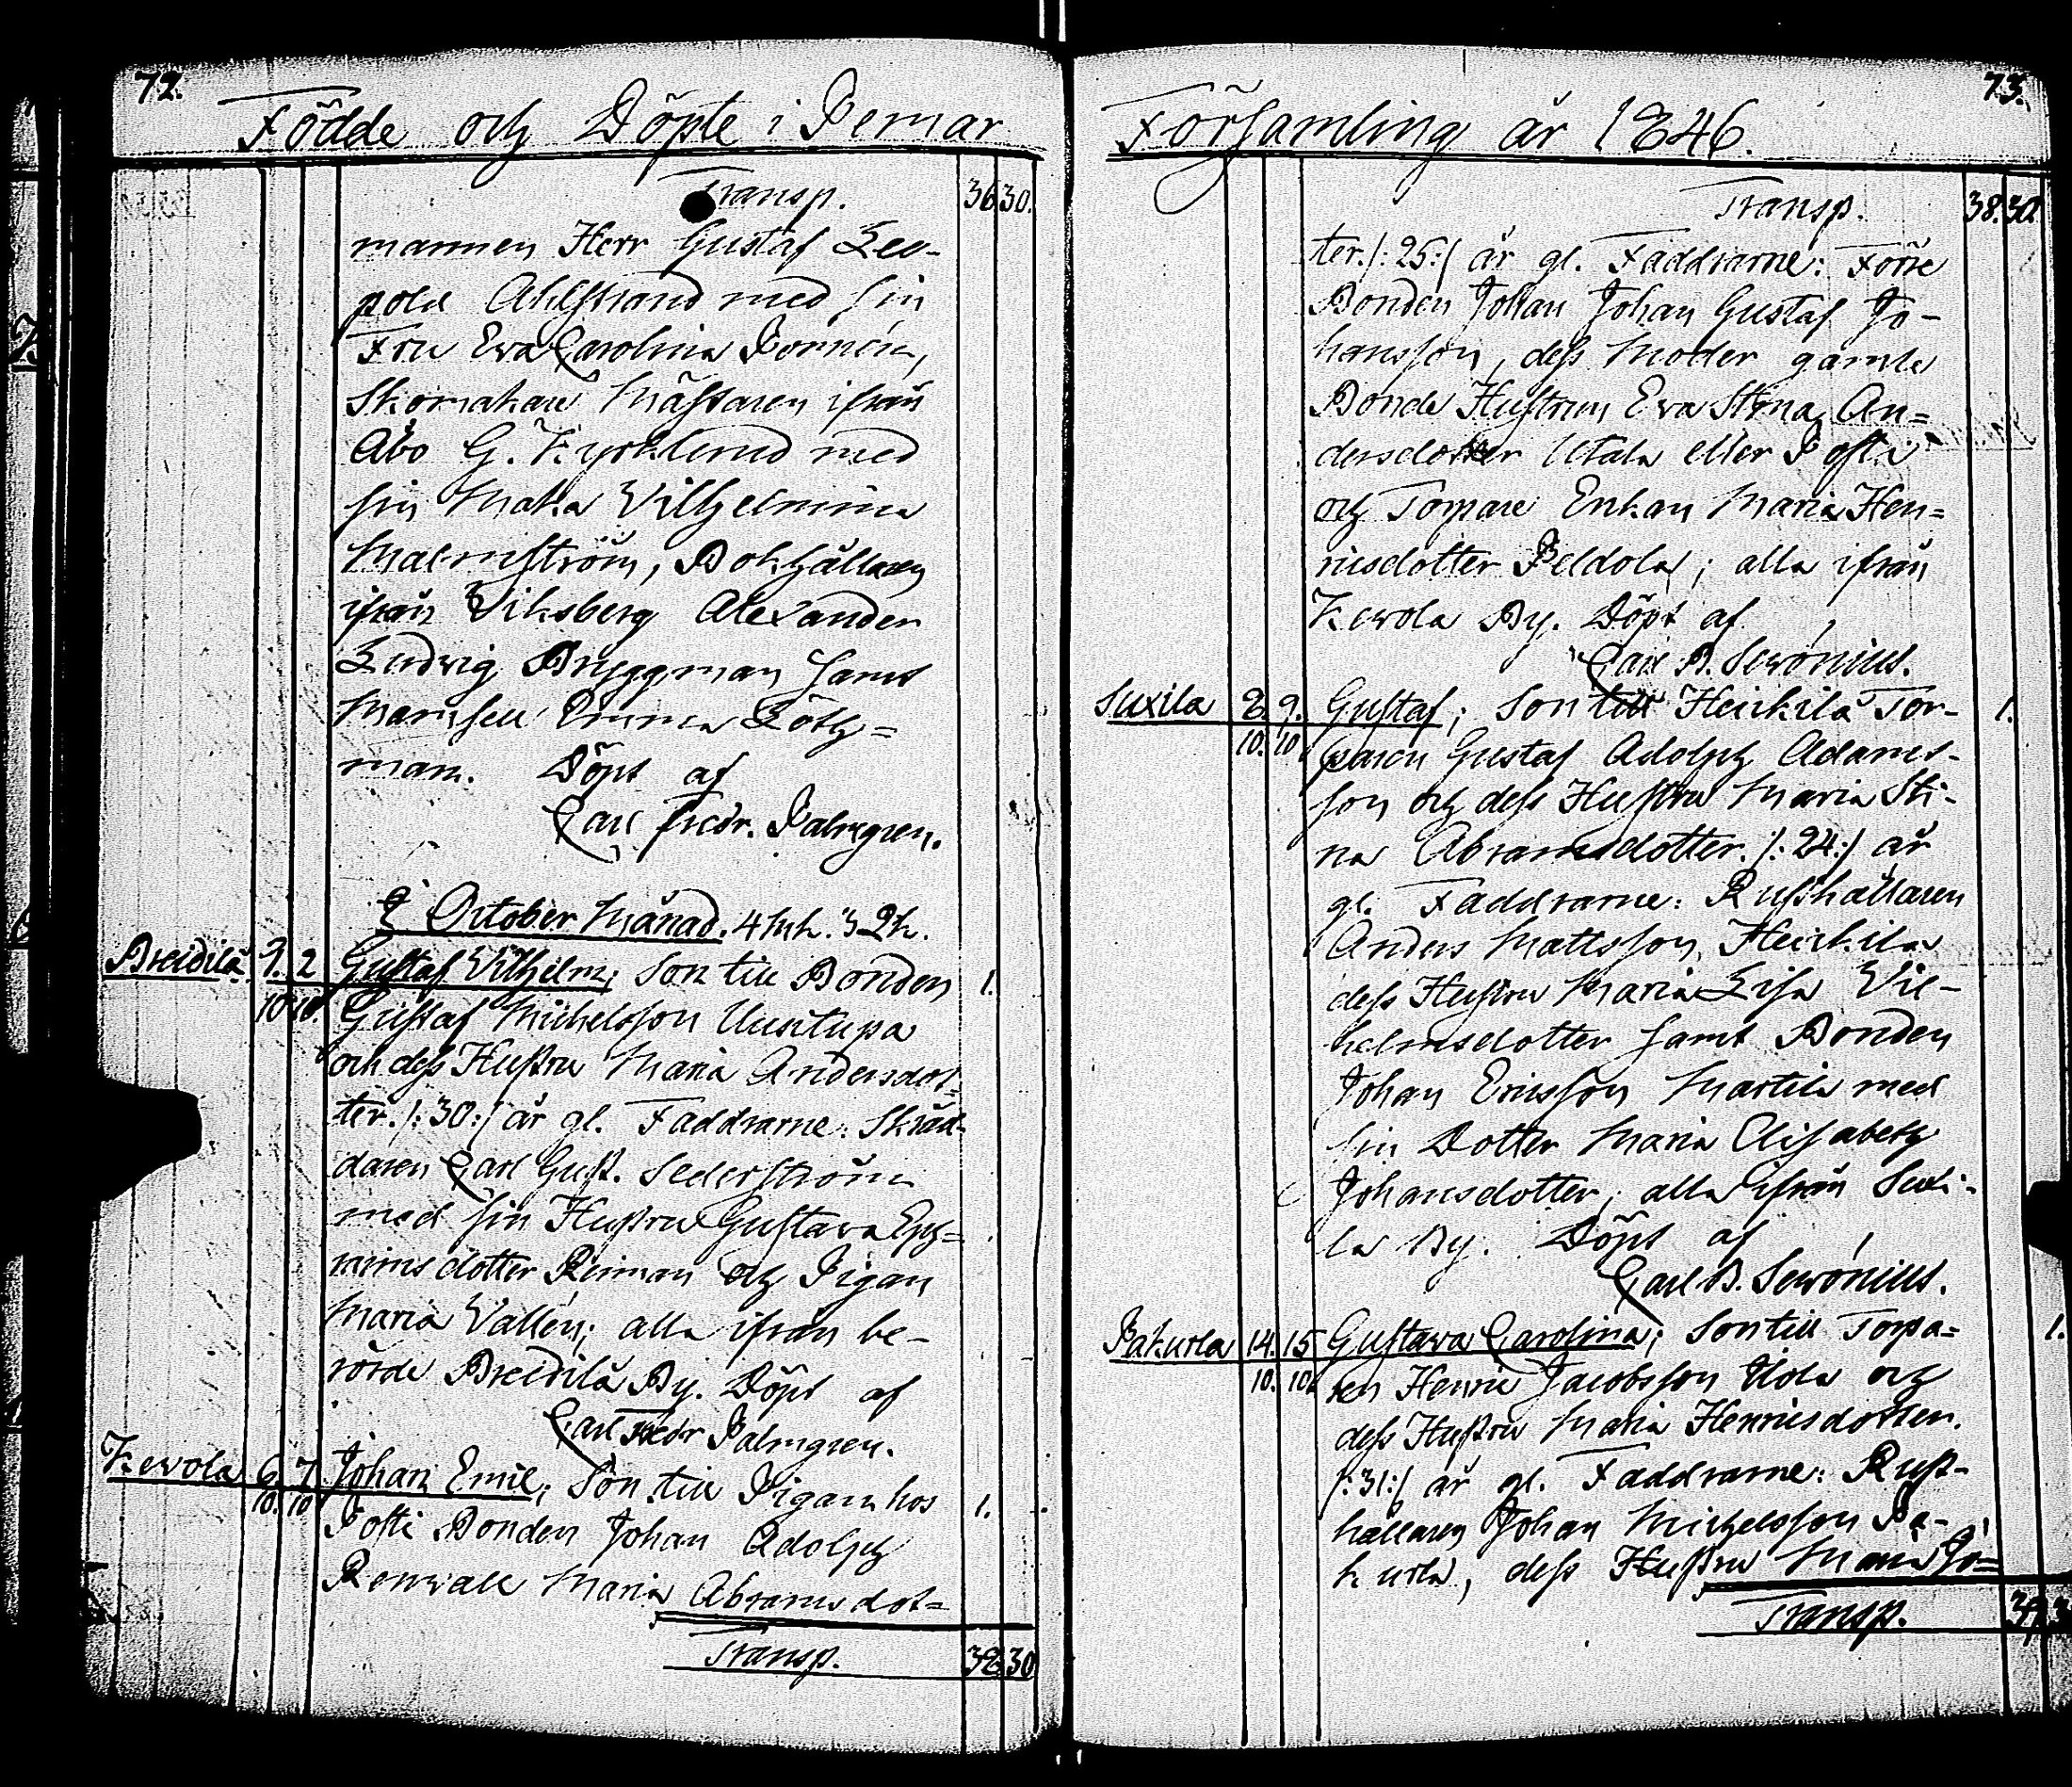 72.
Födde och Döpte i Pemar
Transp. 36 30.
mannen Herr Gustaf Leo-
pold Ahlstrand med sin
Fru Eva Carolina
Skomakare Mästaren ifrån
Åbo G. Kyrklund med
sin Maka Vilhelmina
Malmström, Bokhållaren
ifrån Viksberg Alexander
Ludvig Bryggman samt
Mamsell Emma Löth=
man. Döpt af
Carl Fredr. Palmgren.
I October Månad. 4 Mk. 3 Qk.
Breidilä 1. 2 Gustaf Vilhelm; Son till Bonden 1.
10 10. Gustaf Michelsson Uusitupa
och dess Hustru Maria Andersdot-
ter. /:30:/ år gl. Faddrarne: Skräd-
daren Carl Gust. Sederström
med sin Hustru Gustava Eph=
raimsdotter Reiman och Pigan
Maria Vallén; alla ifrån be-
rörde Breidilä By. Döpt af
Carl Fredr Palmgren.
Kevola 6. 7 Johan Emil; Son till Pigan hos 1.
10. 10 Posti Bonden Johan Adolph
Renvall Maria Abramsdot=
Transp. 38 30
73.
Församling år 1846.
Transp. 38. 30
ter. /:25:/ år gl. Faddrarne: Förre
Bonden Johan Johan Gustaf Jo-
hansson, dess Moder gamla
Bonde Hustrun Eva Stina An=
dersdotter Utala eller Posti
och Torpare Enkan Maria Hen=
ricsdotter Peldola; alla ifrån
Kevola By. Döpt af
Carl B. Serónius.
Suxila 8. 9. Gustaf; Son till Heickilä Tor- 1.
10. 10 paren Gustaf Adolph Adams-
son och dess Hustru Maria Sti-
na Abramsdotter. /:24:/ år
gl. Faddrarne: Rusthållaren
Anders Mattsson Heickilä
dess Hustru Maria Lisa Vil-
helmsdotter samt Bonden
Johan Ericsson Martila med
sin Dotter Maria Elisabeth
Johansdotter; alla ifrån Suxi-
la By. Döpt af
Carl B. Serónius.
Pakurla 14. 15 Gustava Carolina; Son till Torpa= 1.
10. 10. ren Henric Jacobsson Uola och
dess Hustru Maria Henricsdotter.
/:31:/ år gl. Faddrarne: Rust-
hållaren Johan Michelsson Pa-
kurla, dess Hustru Maria Jo=
Transp. 39. 3